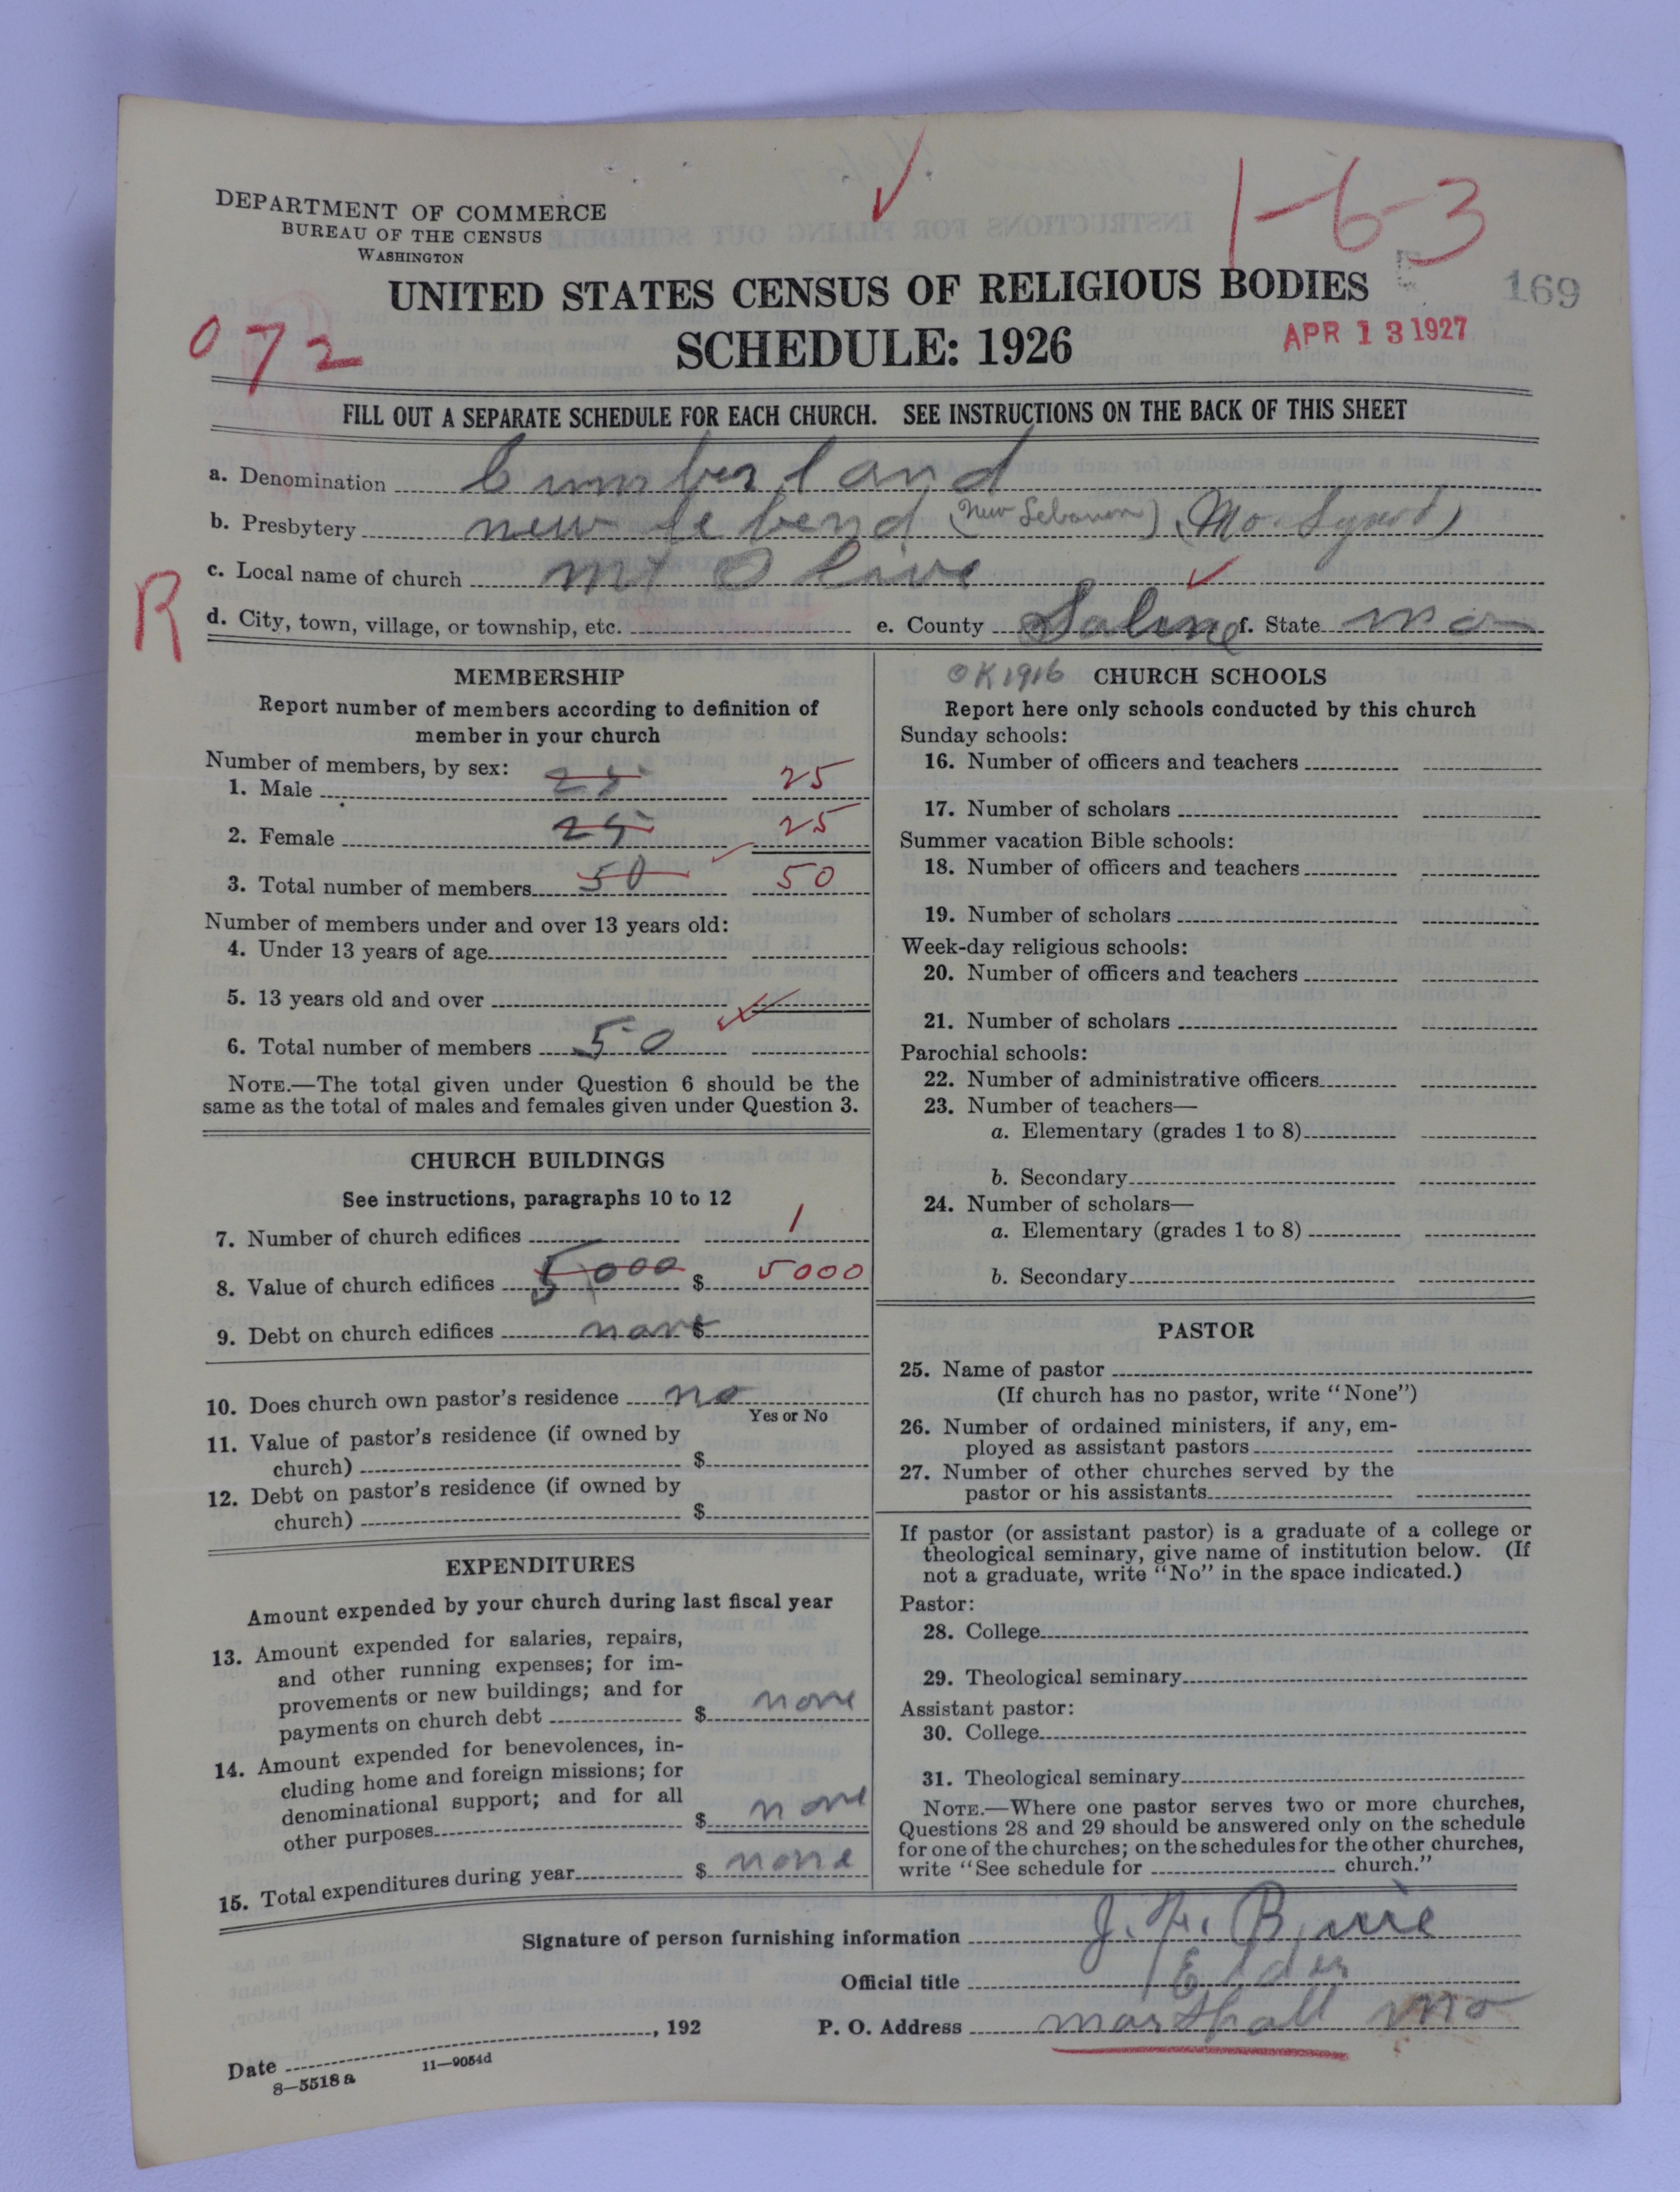 1-6-3
DEPARTMENT OF COMMERCE
BUREAU OF THE CENSUS
WASHINGTON
UNITED STATES CENSUS OF RELIGIOUS BODIES
169
072
SCHEDULE: 1926
APR 13 1927
FILL OUT A SEPARATE SCHEDULE FOR EACH CHURCH. SEE INSTRUCTIONS ON THE BACK OF THIS SHEET
a. Denomination Cumberland
b. Presbytery new lebend (New Lebanon) (Mo. Synod)
c. Local name of church mt Olive
R
d. City, town, village, or township, etc. e. County Saline f. State mo
MEMBERSHIP
Report number of members according to definition of
member in your church
Number of members, by sex:
1. Male 25 25
2. Female 25 25
3. Total number of members 50 50
Number of members under and over 13 years old:
4. Under 13 years of age
5. 13 years old and over
6. Total number of members 50
NOTE.—The total given under Question 6 should be the
same as the total of males and females given under Question 3.
CHURCH BUILDINGS
See instructions, paragraphs 10 to 12
7. Number of church edifices 1
8. Value of church edifices 5000 $ 5000
9. Debt on church edifices none $
10. Does church own pastor's residence no
Yes or No
11. Value of pastor's residence (if owned by
church) $
12. Debt on pastor's residence (if owned by
church) $
EXPENDITURES
Amount expended by your church during last fiscal year
13. Amount expended for salaries, repairs,
and other running expenses; for im-
provements or new buildings; and for
payments on church debt $ none
14. Amount expended for benevolences, in-
cluding home and foreign missions; for
denominational support; and for all
other purposes $ none
15. Total expenditures during year $ none
OK 1916 CHURCH SCHOOLS
Report here only schools conducted by this church
Sunday schools:
16. Number of officers and teachers
17. Number of scholars
Summer vacation Bible schools:
18. Number of officers and teachers
19. Number of scholars
Week-day religious schools:
20. Number of officers and teachers
21. Number of scholars
Parochial schools:
22. Number of administrative officers
23. Number of teachers—
a. Elementary (grades 1 to 8)
b. Secondary
24. Number of scholars—
a. Elementary (grades 1 to 8)
b. Secondary
PASTOR
25. Name of pastor
(If church has no pastor, write "None")
26. Number of ordained ministers, if any, em-
ployed as assistant pastors
27. Number of other churches served by the
pastor or his assistants
If pastor (or assistant pastor) is a graduate of a college or
theological seminary, give name of institution below. (If
not a graduate, write "No" in the space indicated.)
Pastor:
28. College
29. Theological seminary
Assistant pastor:
30. College
31. Theological seminary
NOTE.—Where one pastor serves two or more churches,
Questions 28 and 29 should be answered only on the schedule
for one of the churches; on the schedules for the other churches,
write "See schedule for church."
Signature of person furnishing information J.
Official title Elder
Date , 192 P. O. Address marshall mo
8—5518 a 11—9054d